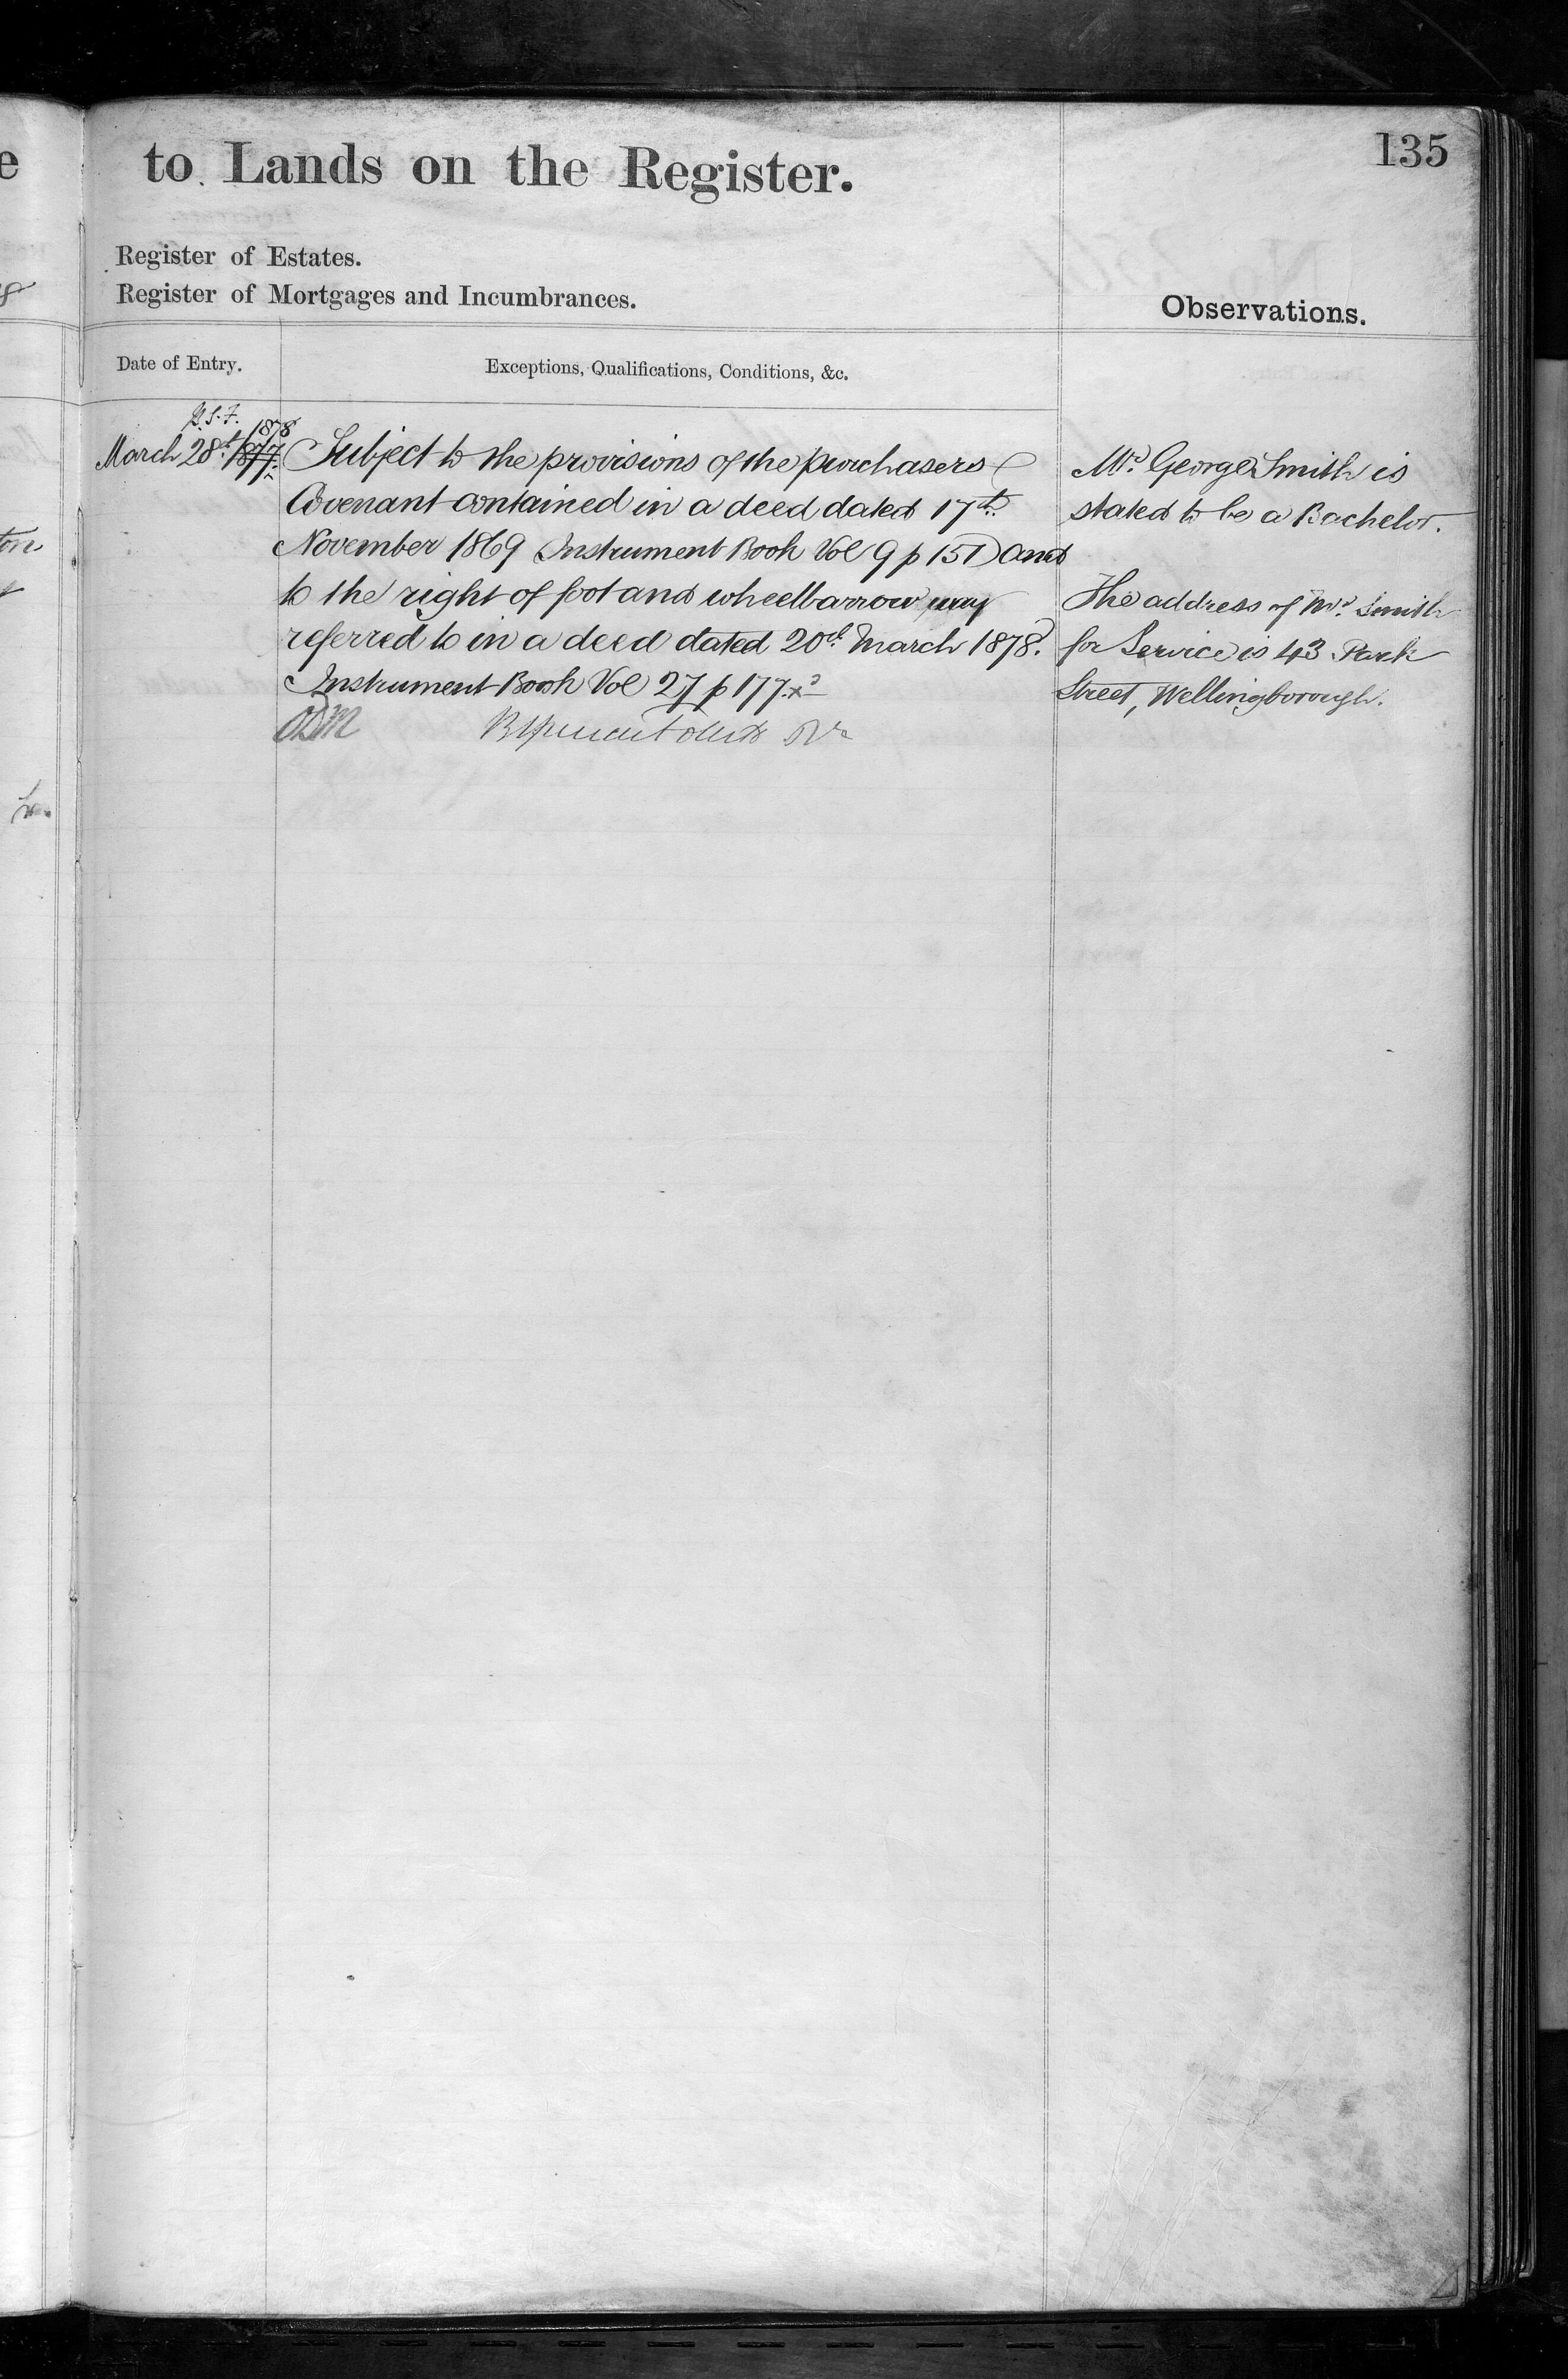 135
to Lands on the Register.
Register of Estates.
Register of Mortgages and Incumbrances.
Observations.
Date of Entry.
Exceptions, Qualifications, Conditions, &c.
1878
March 28th 1877.
Subject to the provisions of the purchasers
Covenant contained in a deed dated 17th
November 1869 Instrument Book Vol 9 p 151 and
to the right of foot and wheelbarrow way
referred to in a deed dated 20th March 1878.
Instrument Book Vol 27 p 177.
Mr. George Smith is
stated to be a Bachelor.
The address of Mr. Smith
for Service is 43 Park
Street, Wellingborough.